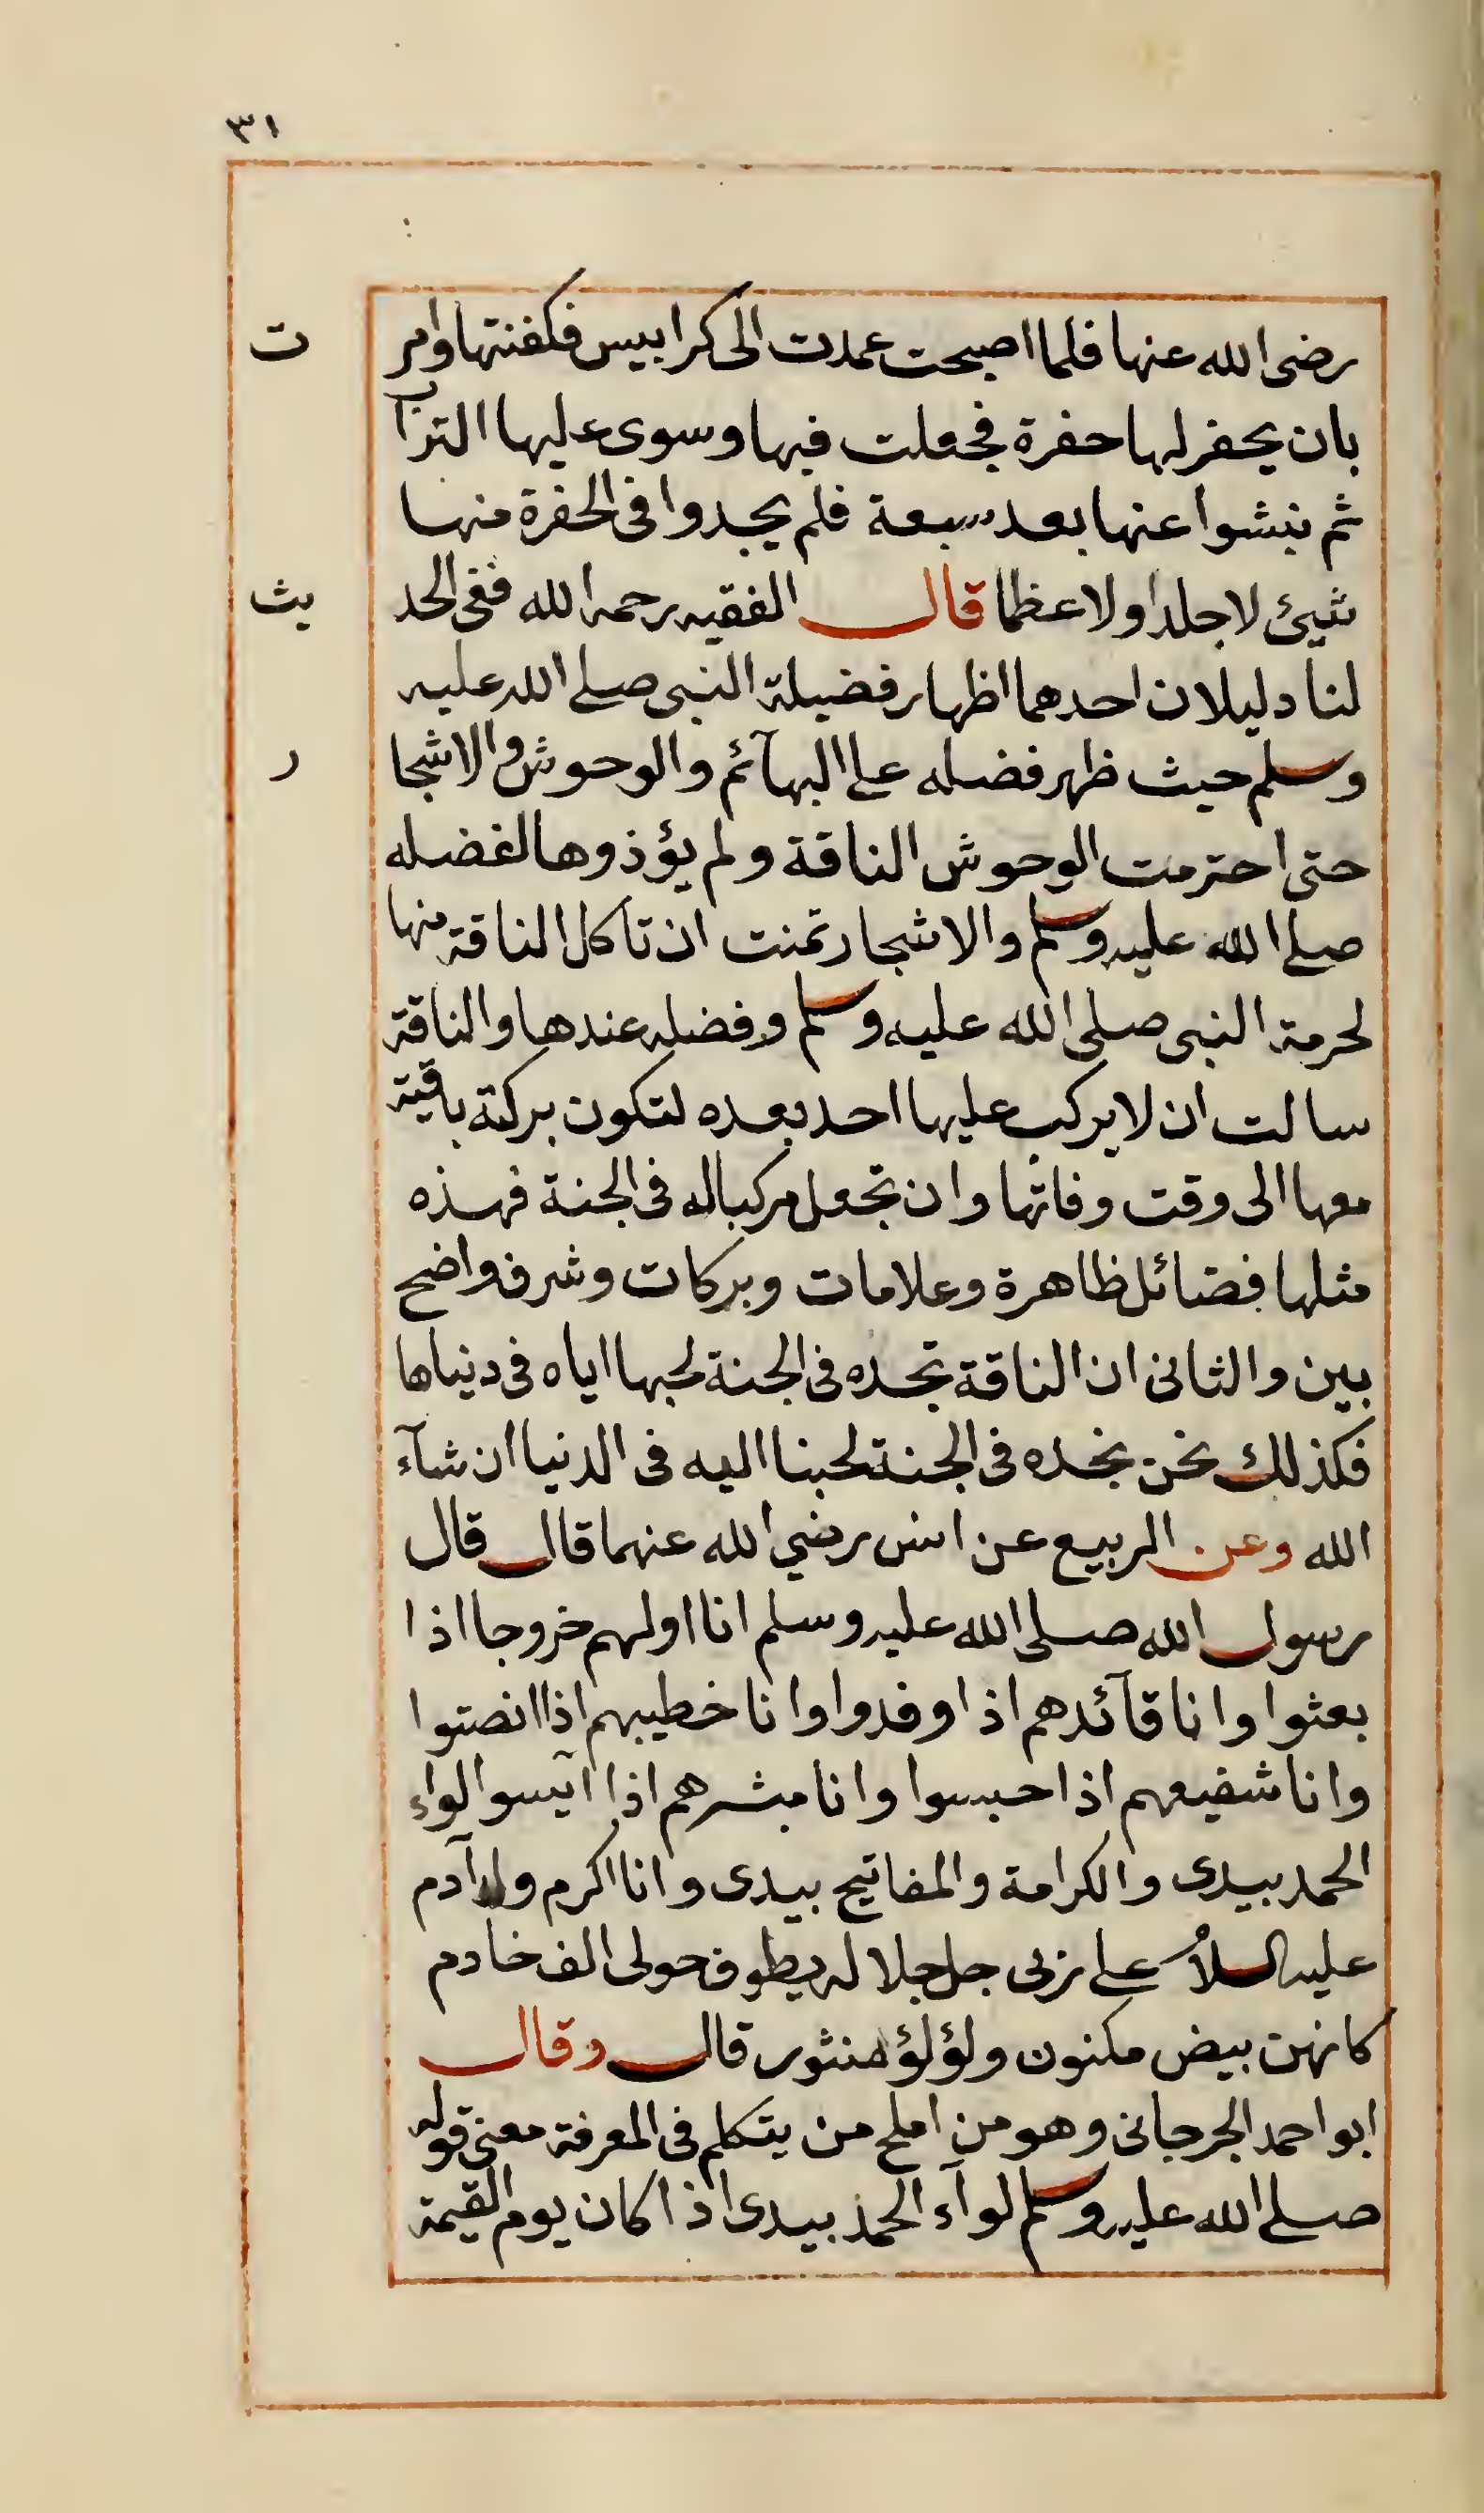 ٣١
رضى الله عنها فلما اصبحت عمدت الى كرابيس فكفنتها وامر ت
بان يحفر لها حفرة فجعلت فيها وسوى عليها التراب
ثم نبشوا عنها بعد سبعة فلم يجدوا فى الحفرة منها
شيئ لا جلدا ولا عظما قال الفقيه رحمه الله ففى الحد يث
لنا دليلان احدهما اظهار فضيلة النبى صلى الله عليه
وسلم حيث ظهر فضله على البهآئم والوحوش والاشجا ر
حتى احترمت الوحوش الناقة ولم يؤذوها لفضله
صلى الله عليه وسلم والاشجار تمنت ان تأكل الناقة منها
لحرمة النبى صلى الله عليه وسلم وفضله عندها والناقة
سالت ان لا يركب عليها احد بعده لتكون بركته باقية
معها الى وقت وفاتها وان تجعل مركبا له فى الجنة فهذه
مثلها فضائل ظاهرة وعلامات وبركات وشرف واضح
بين والثانى ان الناقة تجده فى الجنة لحبها اياه فى دنياها
فكذلك نحن نجده فى الجنة لحبنا اليه فى الدنيا ان شآء
الله وعن الربيع عن انس رضي الله عنهما قال قال
رسول الله صلى الله عليه وسلم انا اولهم خروجا اذا
بعثوا وانا قآئدهم اذا وفدوا وانا خطيبهم اذا انصتوا
وانا شفيعهم اذا حبسوا وانا مبشرهم اذا آيسوا لواء
الحمد بيدى والكرامة والمفاتيح بيدى وانا اكرم ولد آدم
عليه السلام على ربى جل جلاله يطوف حولى الف خادم
كانهن بيض مكنون ولؤلؤ منثور قال وقال
ابو احمد الجرجانى وهو من املح من يتكلم فى المعرفة معنى قوله
صلى الله عليه وسلم لوآء الحمد بيدى اذا كان يوم القيمة